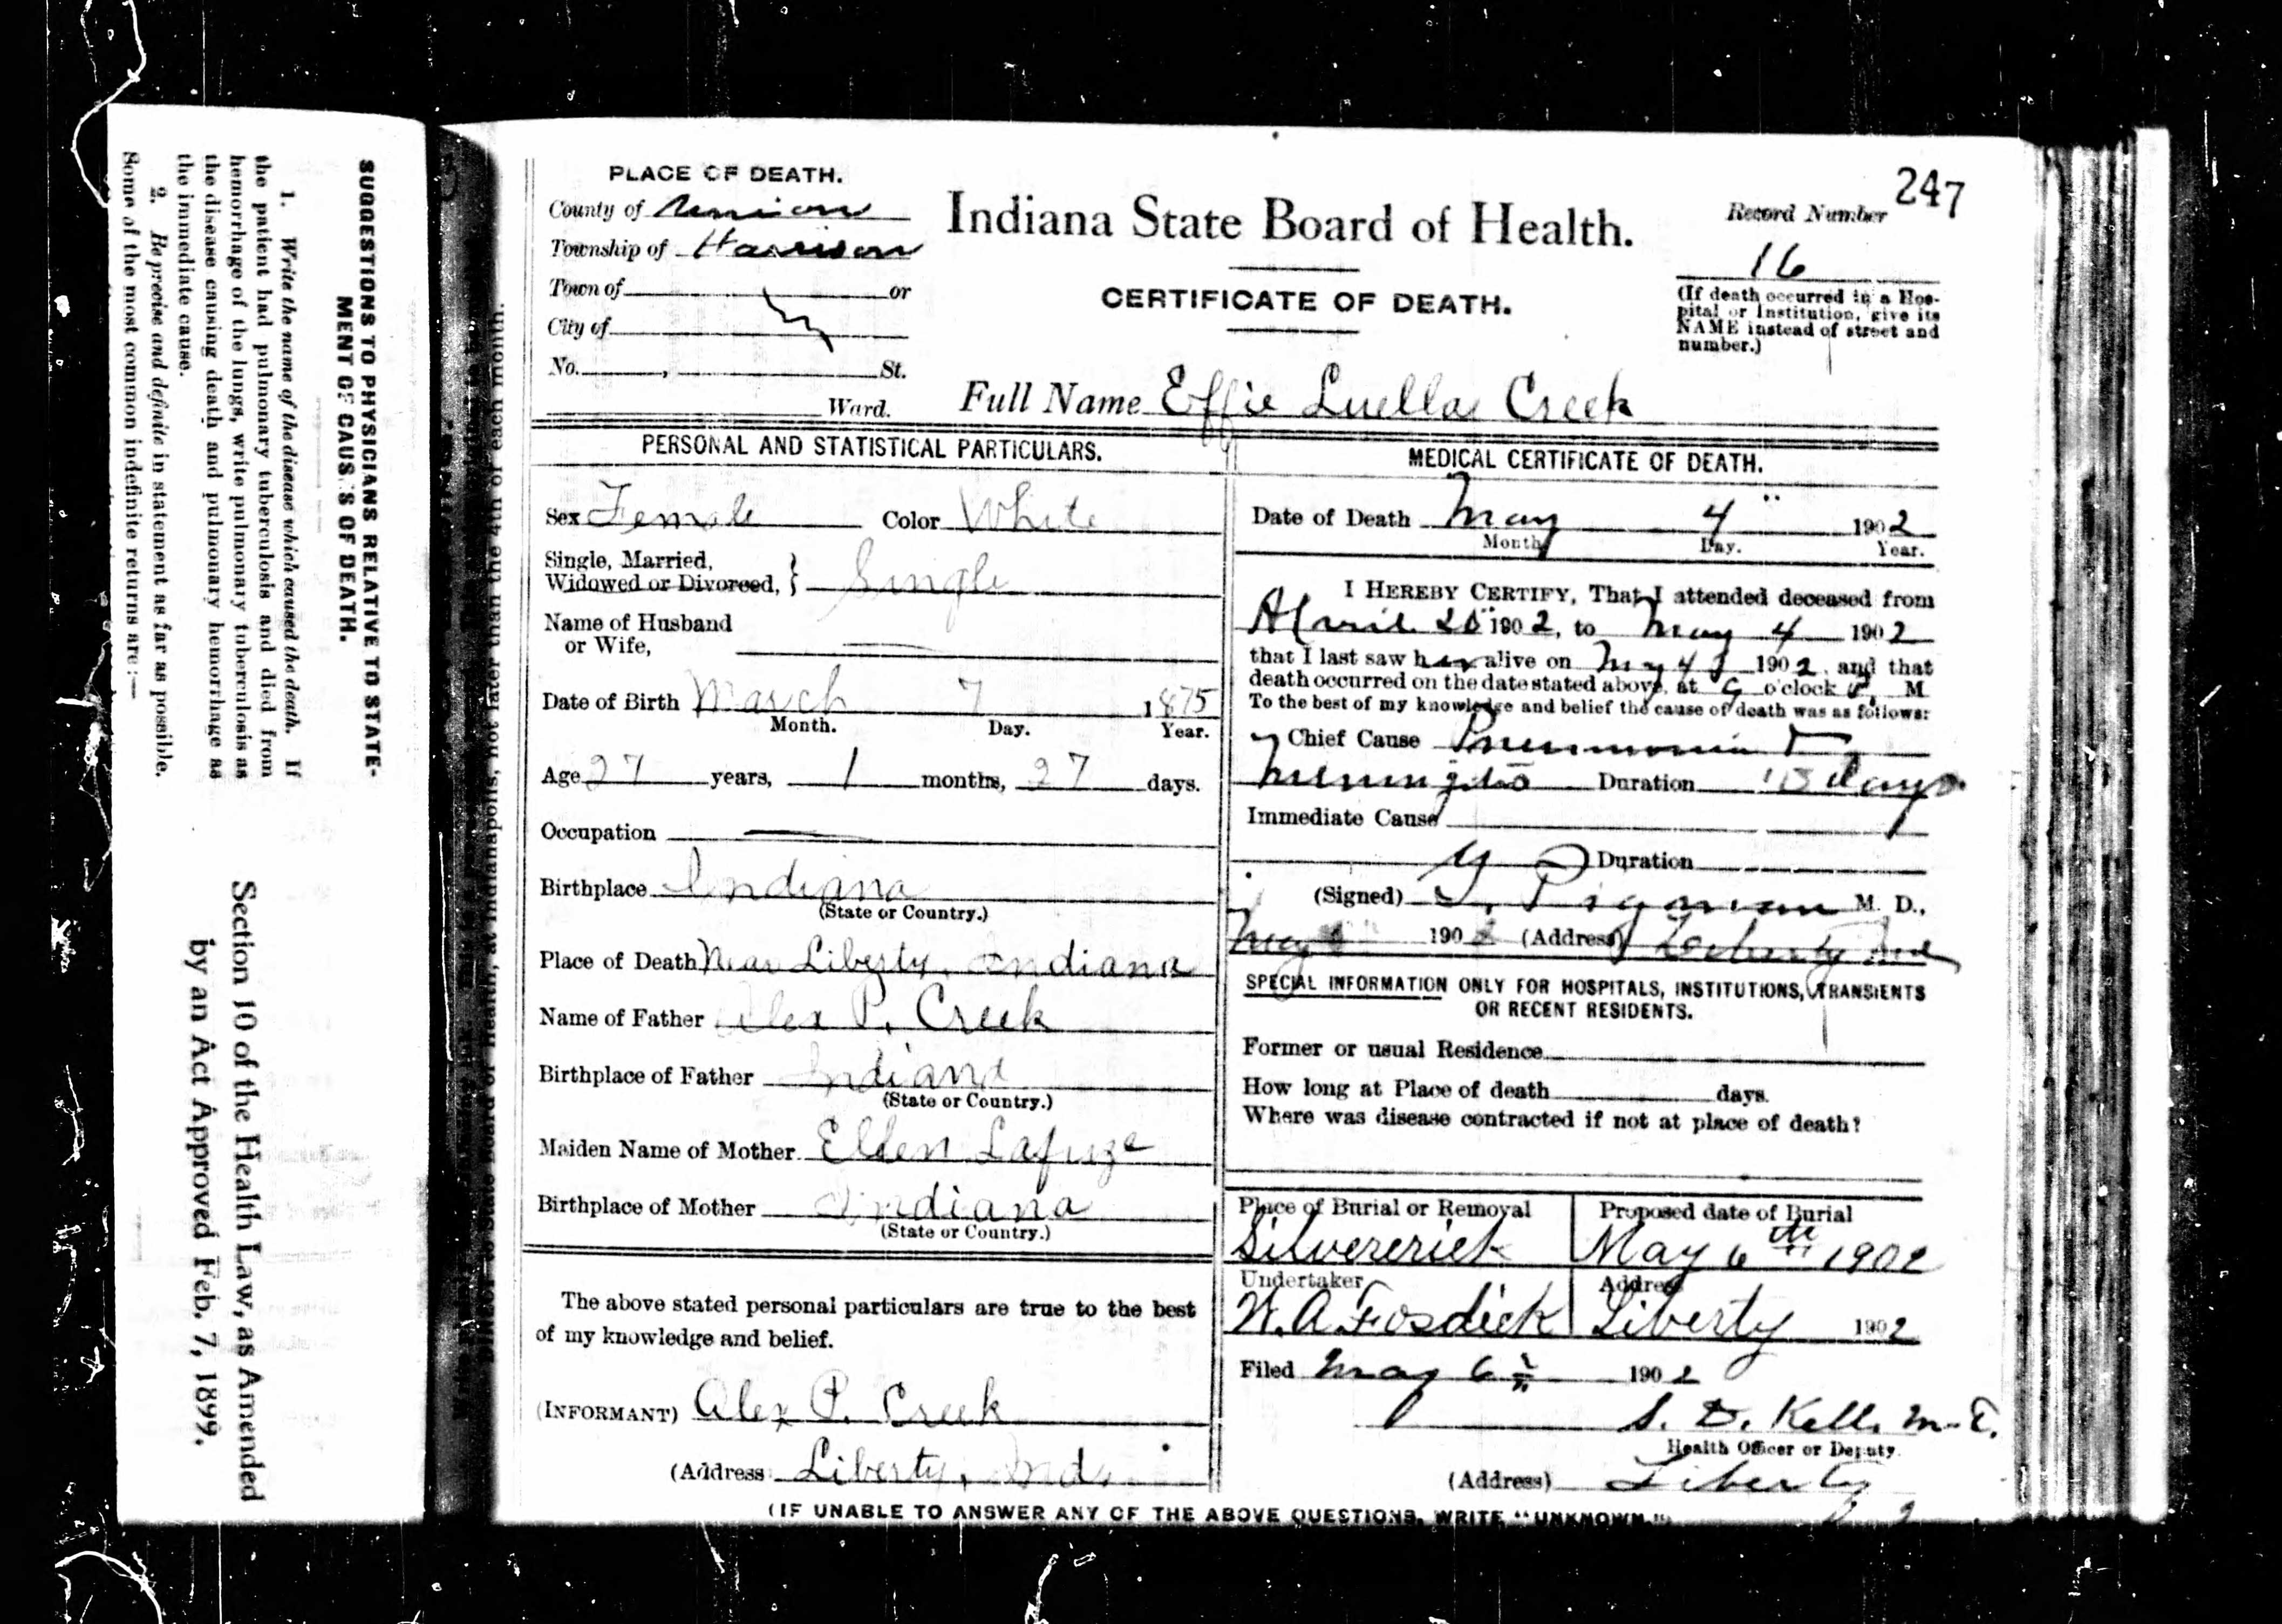 SUGGESTIONS TO PHYSICIANS RELATIVE TO STATE-
MENT OF CAUSES OF DEATH.
1. Write the name of the disease which caused the death. If
the patient had pulmonary tuberculosis and died from
hemorrhage of the lungs, write pulmonary tuberculosis as
the disease causing death and pulmonary hemorrhage as
the immediate cause.
2. Be precise and definite in statement as far as possible.
Some of the most common indefinite returns are:—
Section 10 of the Health Law, as Amended
by an Act Approved Feb. 7, 1899.
State Board of Health, at Indianapolis, not later than the 4th of each month.
247
PLACE OF DEATH.
County of Union
Township of Harrison
Town of or
City of
No. , St.
Ward.
Indiana State Board of Health.
CERTIFICATE OF DEATH.
Record Number
16
(If death occurred in a Hos-
pital or Institution, give its
NAME instead of street and
number.)
Full Name Effie Luella Creek
PERSONAL AND STATISTICAL PARTICULARS.
Sex Female Color White
Single, Married,
Widowed or Divorced, } Single
Name of Husband
or Wife,
Date of Birth March 7 1875
Month. Day. Year.
Age 27 years, 1 months, 27 days.
Occupation
Birthplace Indiana
(State or Country.)
Place of Death Near Liberty, Indiana
Name of Father Alex P. Creek
Birthplace of Father Indiana
(State or Country.)
Maiden Name of Mother Ellen Lafuze
Birthplace of Mother Indiana
(State or Country.)
The above stated personal particulars are true to the best
of my knowledge and belief.
(INFORMANT) Alex P. Creek
(Address Liberty, Ind.
MEDICAL CERTIFICATE OF DEATH.
Date of Death May 4 1902
Month Day. Year.
I HEREBY CERTIFY, That I attended deceased from
April 1902, to May 4 1902
that I last saw her alive on May 4 1902, and that
death occurred on the date stated above, at o'clock P. M
To the best of my knowledge and belief the cause of death was as follows:
Chief Cause Pneumonia
Meningitis Duration days
Immediate Cause
Duration
(Signed) Pigman M. D.,
May 190 (Address) Liberty Ind
SPECIAL INFORMATION ONLY FOR HOSPITALS, INSTITUTIONS, TRANSIENTS
OR RECENT RESIDENTS.
Former or usual Residence
How long at Place of death days.
Where was disease contracted if not at place of death?
Place of Burial or Removal
Silvercriek
Proposed date of Burial
May 6th 1902
Undertaker
W. A. Fosdick
Address
Liberty 1902
Filed May 6 1902
S. D. Kell. M.D.
Health Officer or Deputy.
(Address) Liberty
(IF UNABLE TO ANSWER ANY OF THE ABOVE QUESTIONS, WRITE "UNKNOWN.")